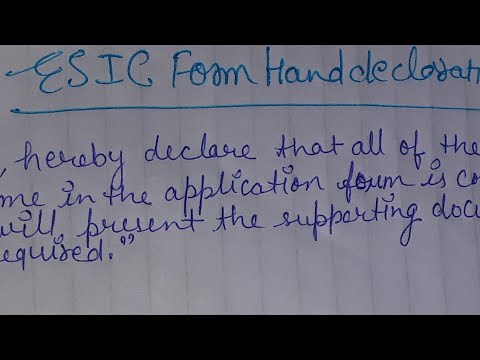 ESIC Form Hand declarati
, hereby declare that all of the
me in the application form is co
will present the supporting docu
equired."